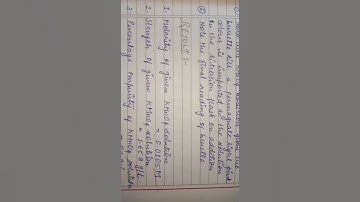 burette till a permanent light pink
colour is imparted to the solution
in the titration flask on addition
⑧ Note the final reading of burette.
RESULT :-
1. Molarity of given KMnO4 solution
= 0.0105M
2. Strength of given KMnO4 solution
= 1.659 g/L
3. Percentage impurity of KMnO4 solution